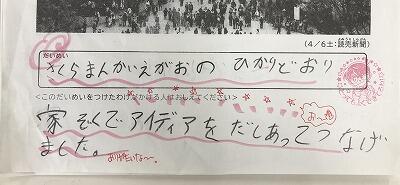 (4/6土：読売新聞)
だいめい
さくらまんかいえがおの ひかりどおり
<このだいめいをつけたわけがかける人はおしえてください>
お〜！
家ぞくでアイディアをだしあってつなげ
ました。